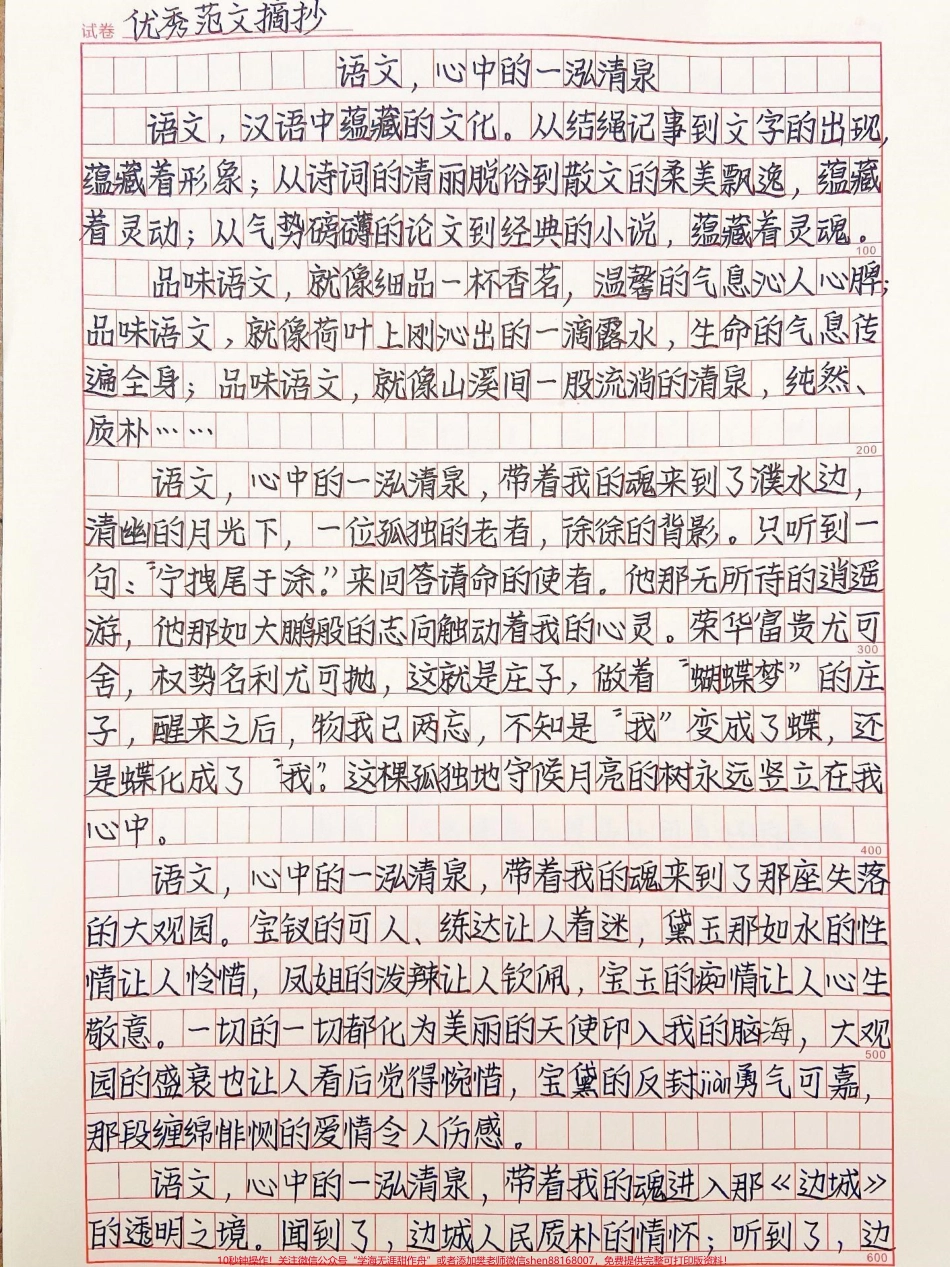 试卷 优秀范文摘抄
语文，心中的一泓清泉
语文，汉语中蕴藏的文化。从结绳记事到文字的出现，
蕴藏着形象；从诗词的清丽脱俗到散文的柔美飘逸，蕴藏
着灵动；从气势磅礴的论文到经典的小说，蕴藏着灵魂。
100
品味语文，就像细品一杯香茗，温馨的气息沁人心脾；
品味语文，就像荷叶上刚沁出的一滴露水，生命的气息传
遍全身；品味语文，就像山溪间一股流淌的清泉，纯然、
质朴……
200
语文，心中的一泓清泉，带着我的魂来到了濮水边，
清幽的月光下，一位孤独的老者，徐徐的背影。只听到一
句：“宁拽尾于涂。”来回答请命的使者。他那无所待的逍遥
游，他那如大鹏般的志向触动着我的心灵。荣华富贵尤可
300
舍，权势名利尤可抛，这就是庄子，做着“蝴蝶梦”的庄
子，醒来之后，物我已两忘，不知是“我”变成了蝶，还
是蝶化成了“我”？这棵孤独地守候月亮的树永远竖立在我
心中。
400
语文，心中的一泓清泉，带着我的魂来到了那座失落
的大观园。宝钗的可人、练达让人着迷，黛玉那如水的性
情让人怜惜，凤姐的泼辣让人钦佩，宝玉的痴情让人心生
敬意。一切的一切都化为美丽的天使印入我的脑海，大观
500
园的盛衰也让人看后觉得惋惜，宝黛的反封jiàn勇气可嘉，
那段缠绵悱恻的爱情令人伤感。
语文，心中的一泓清泉，带着我的魂进入那《边城》
的透明之境。闻到了，边城人民质朴的情怀；听到了，边
600
10秒钟操作！关注微信公众号“学海无涯甜作舟”或者添加樊老师微信shen88168007，免费提供完整可打印版资料！